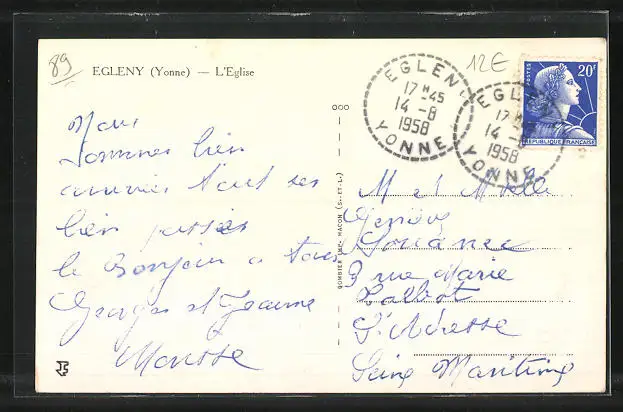 89
EGLENY (Yonne) — L'Eglise
12€
EGLENY
17 H 45
14 -8
1958
YONNE
EGLENY
17 H
14 -8
1958
YONNE
POSTES
20F
REPUBLIQUE FRANÇAISE
Nous
Sommes bien
arrivées tout ses
bien passés
le Bonjour a tous
Georges et Jeanne
Mousse
COMBIER IMP. MACON (S.-ET-L.)
M et Melle
Gouance
3 rue Marie
Talbot
St Adresse
Seine Maritime